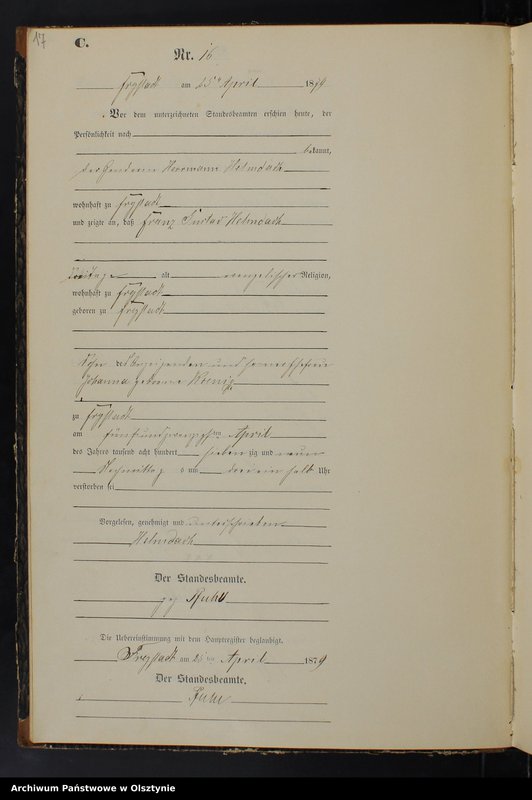 17
C.
Nr. 16
Freystadt am 25ten April 1879
Vor dem unterzeichneten Standesbeamten erschien heute, der
Persönlichkeit nach
bekannt,
Herrmann Helmdach
wohnhaft zu Freystadt
und zeigte an, daß Franz Gustav Helmdach
alt evangelischer Religion,
wohnhaft zu Freystadt
geboren zu Freystadt
Sohn des Anzeigenden und seiner Ehefrau
Johanna geborene
zu Freystadt
am fünfundzwanzigsten April
des Jahres tausend acht hundert sieben zig und neun
Nachmittags um halb Uhr
verstorben sei
Vorgelesen, genehmigt und unterschrieben
Helmdach
Der Standesbeamte.
Die Uebereinstimmung mit dem Hauptregister beglaubigt.
Freystadt am 25ten April 1879
Der Standesbeamte.
Archiwum Państwowe w Olsztynie